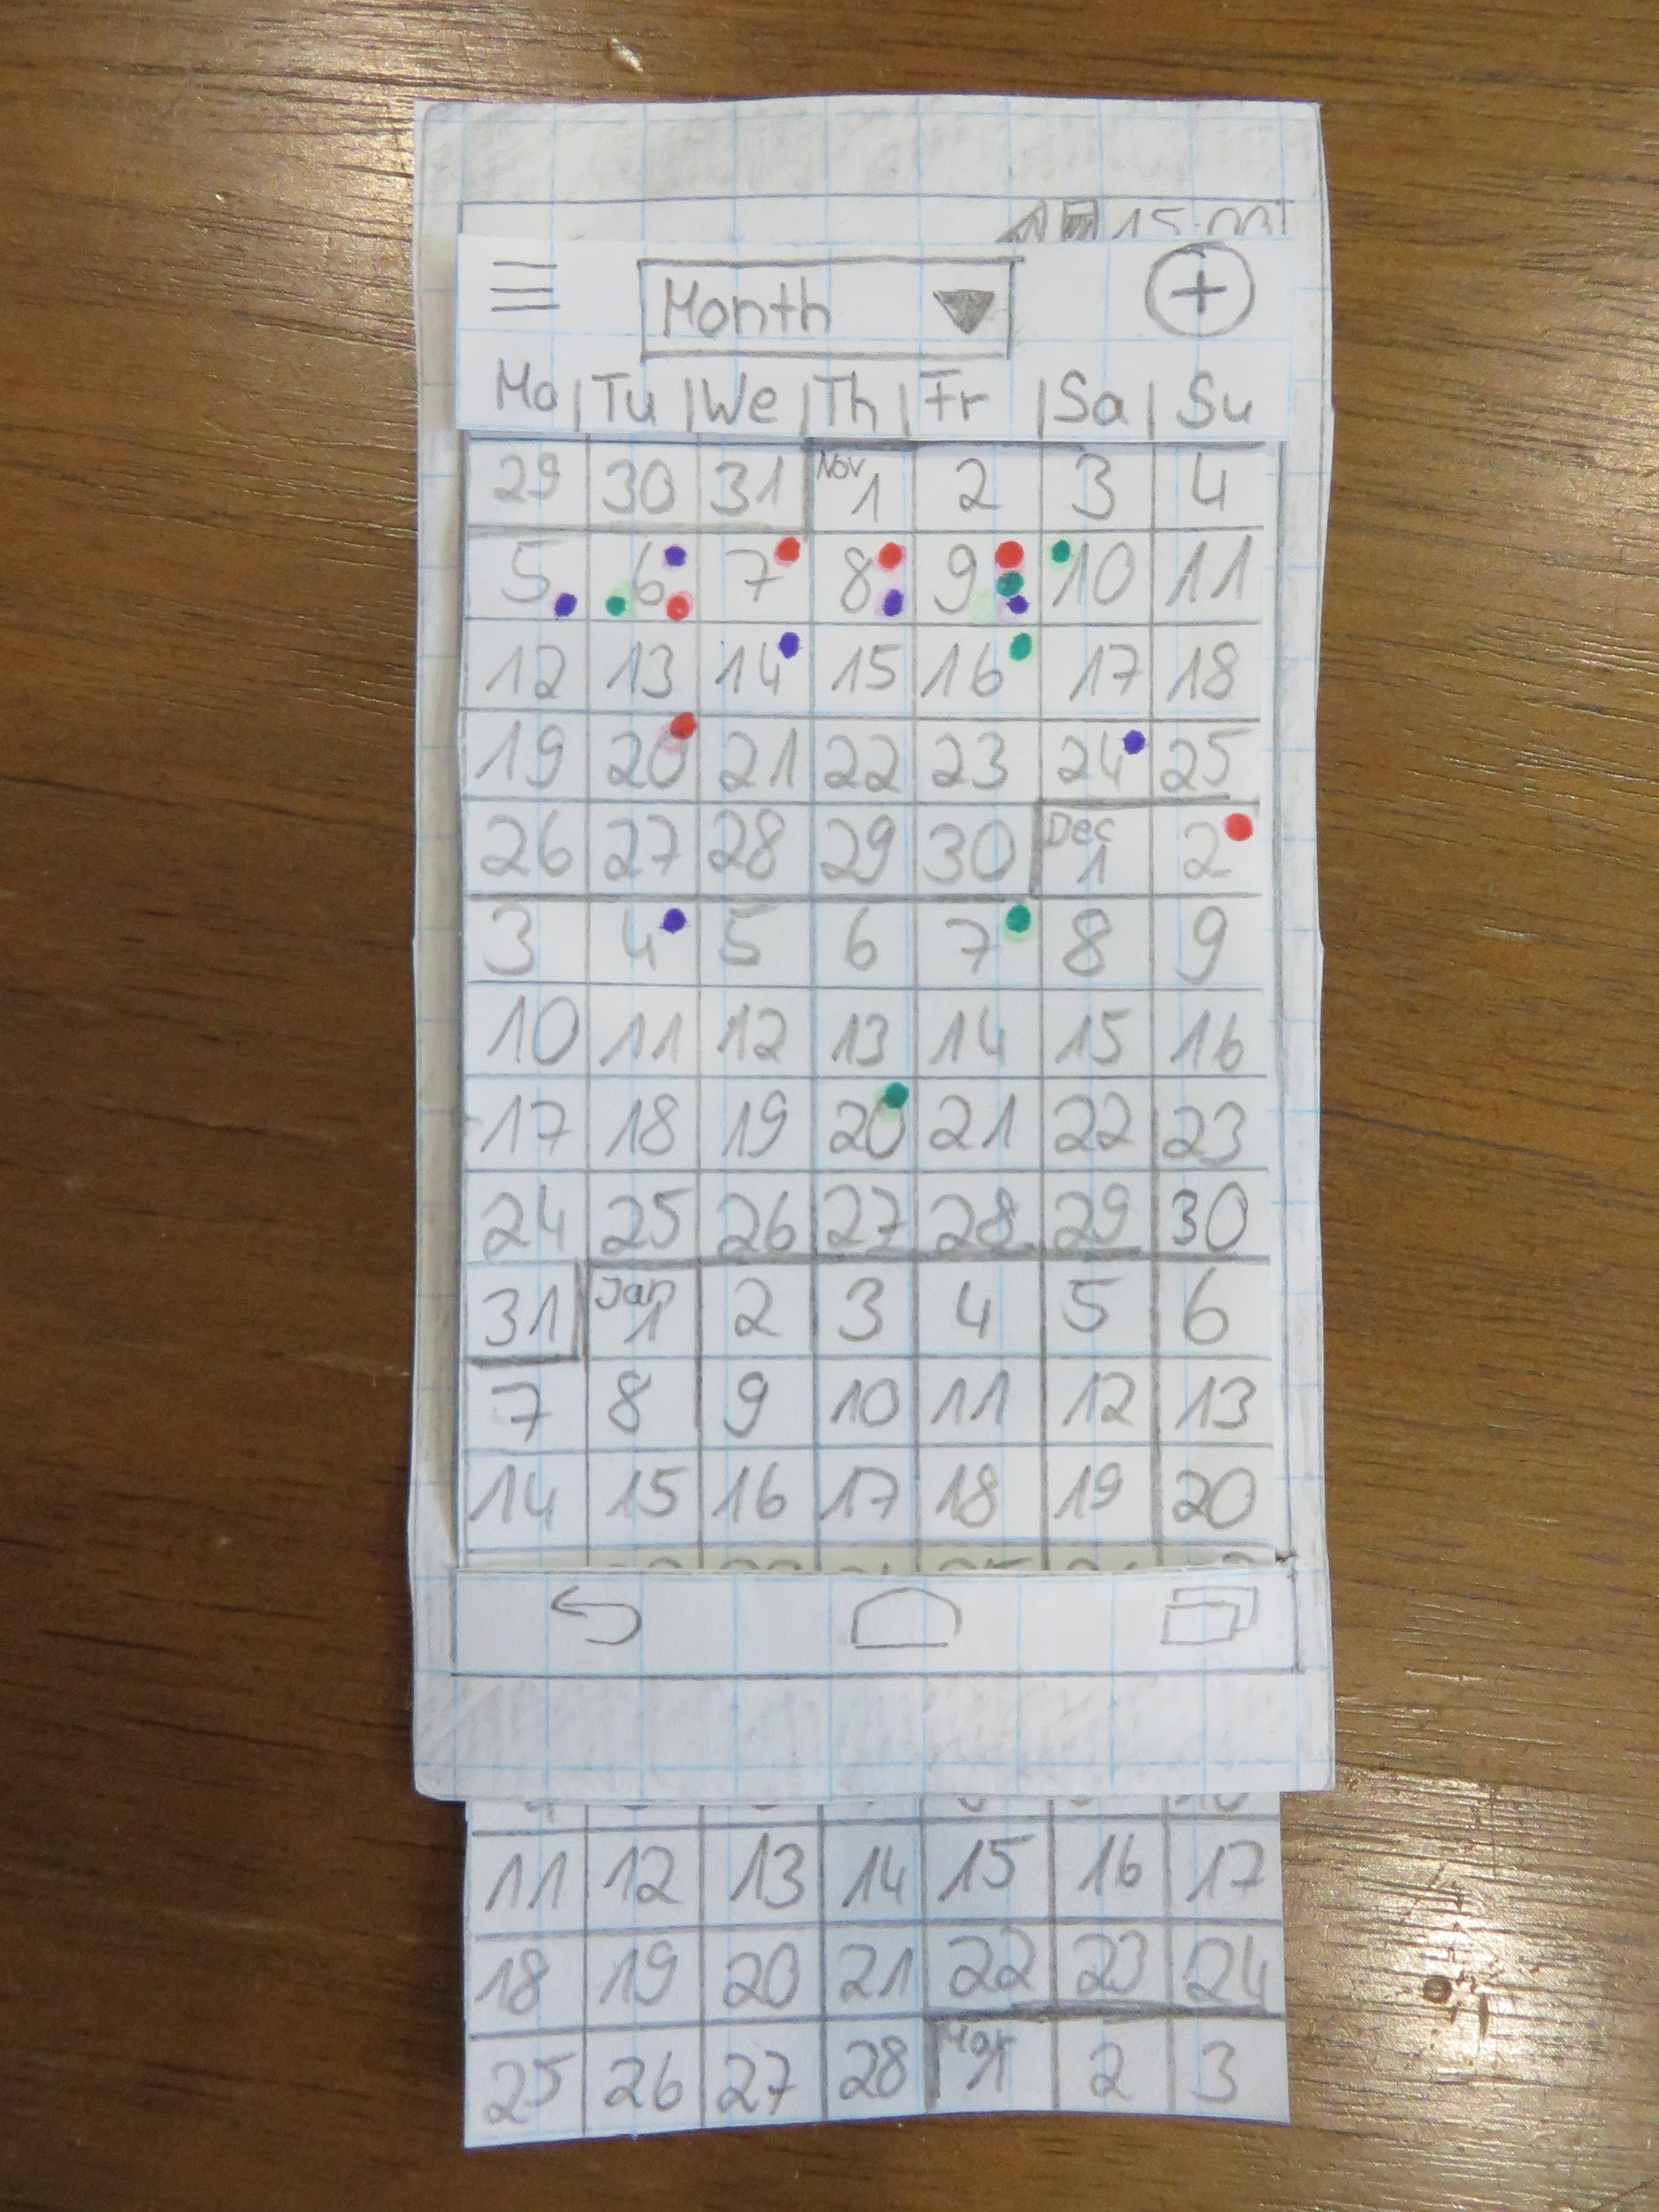 15:00
Month
Mo Tu We Th Fr Sa Su
29 30 31 Nov 1 2 3 4
5 6 7 8 9 10 11
12 13 14 15 16 17 18
19 20 21 22 23 24 25
26 27 28 29 30 Dec 1 2
3 4 5 6 7 8 9
10 11 12 13 14 15 16
17 18 19 20 21 22 23
24 25 26 27 28 29 30
31 Jan 1 2 3 4 5 6
7 8 9 10 11 12 13
14 15 16 17 18 19 20
11 12 13 14 15 16 17
18 19 20 21 22 23 24
25 26 27 28 Mar 1 2 3